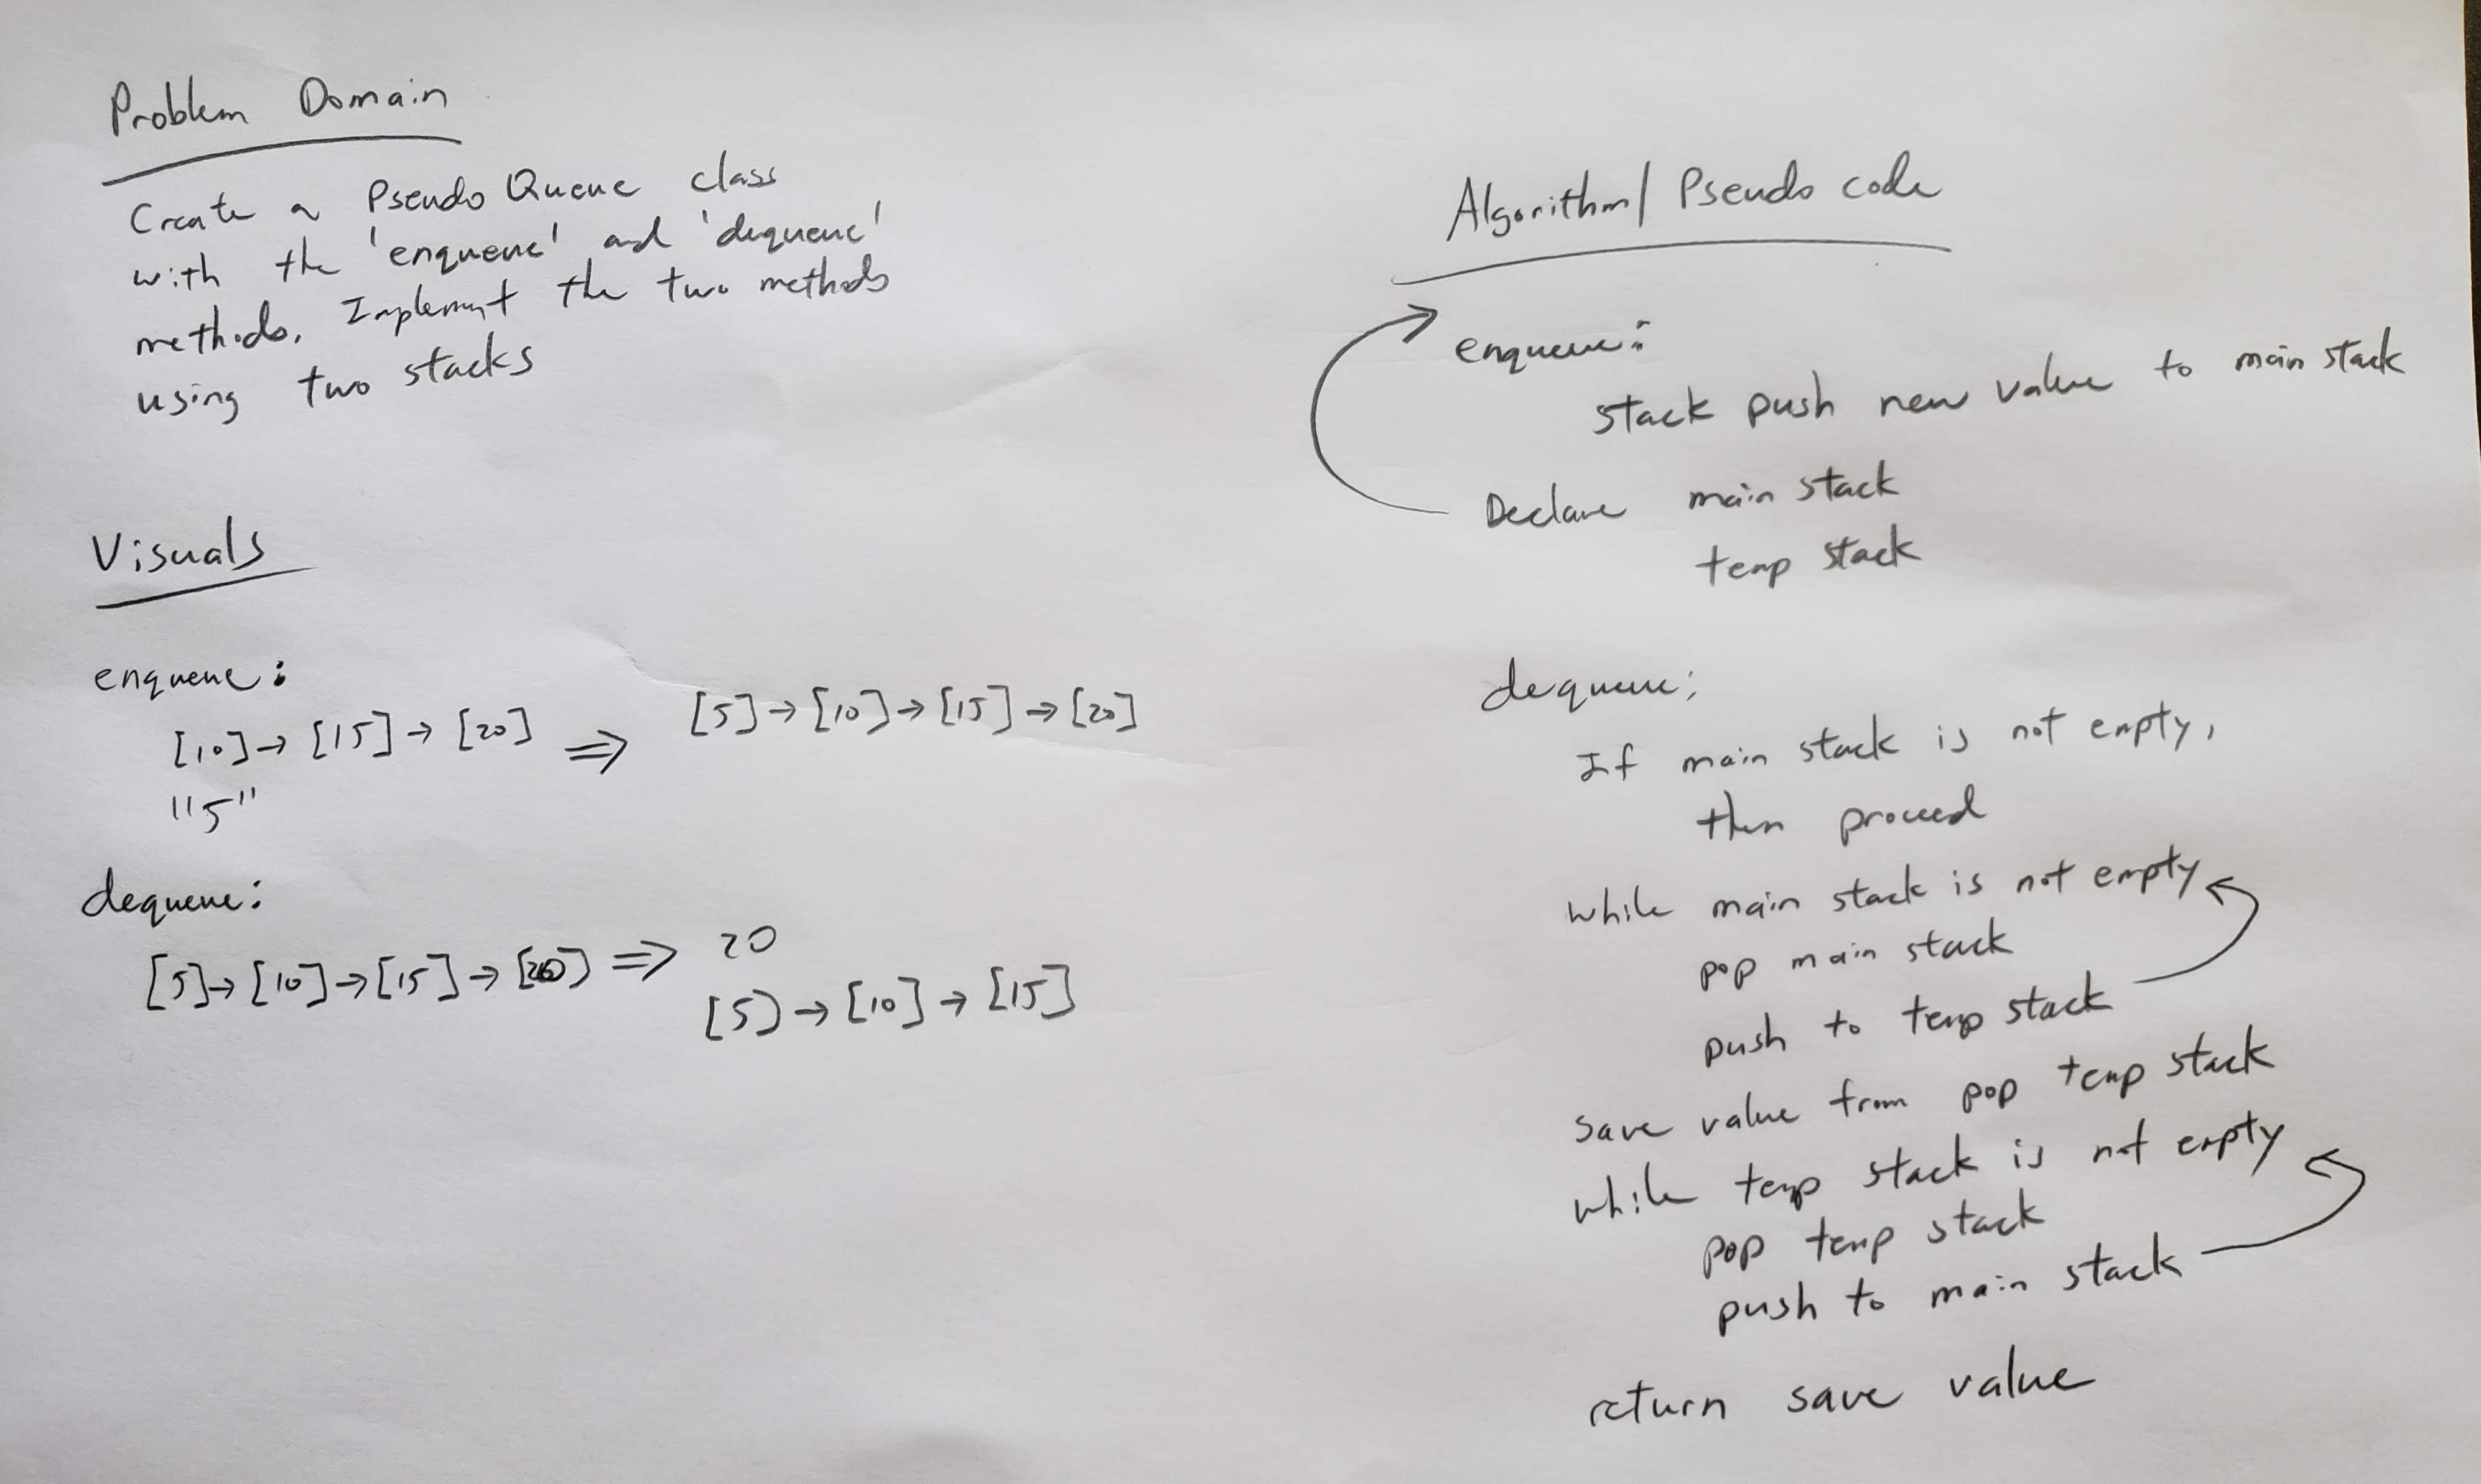 Problem Domain
Create a Pseudo Queue class
with the 'enqueue' and 'dequeue'
methods. Implement the two methods
using two stacks
Visuals
enqueue:
[10]→ [15]→ [20] ⇒ [5]→[10]→[15]→[20]
"5"
dequeue:
[5]→[10]→[15]→[20] ⇒ 20
[5]→[10]→[15]
Algorithm/ Pseudo code
enqueue:
stack push new value to main stack
Declare main stack
temp stack
dequeue:
If main stack is not empty,
then proceed
while main stack is not empty
pop main stack
push to temp stack
save value from pop temp stack
while temp stack is not empty
pop temp stack
push to main stack
return save value